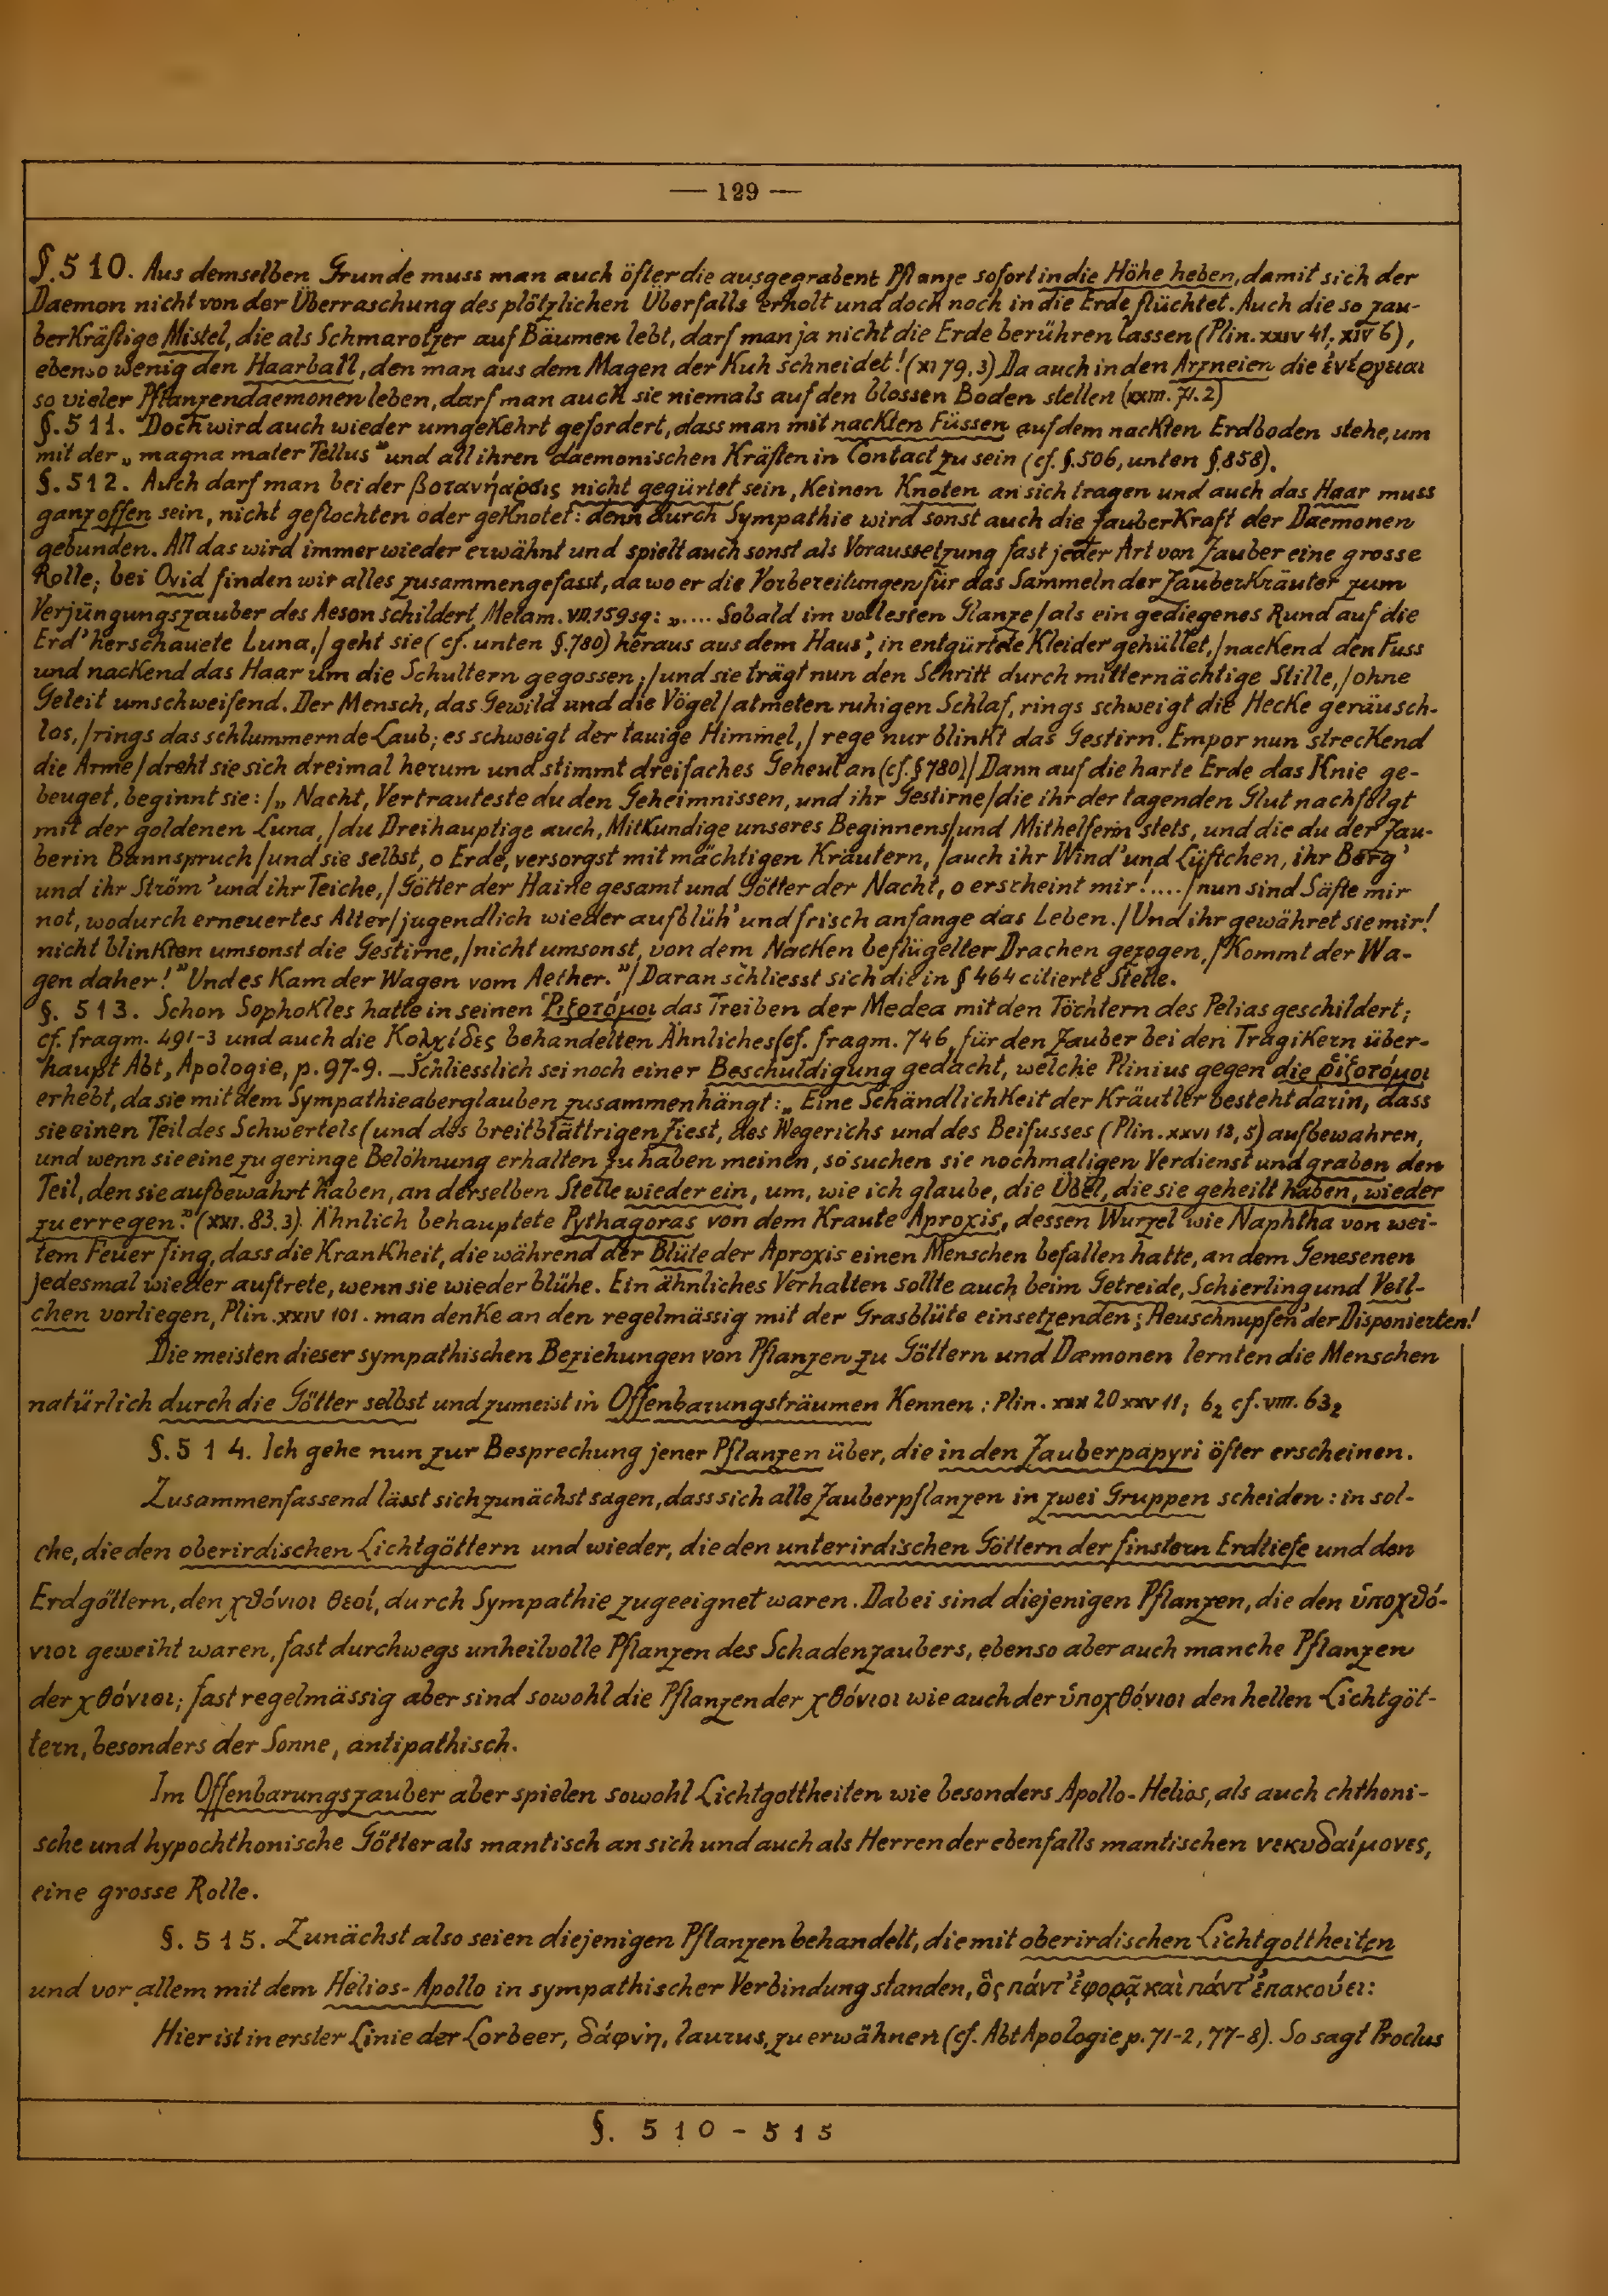 — 129 —
§. 510. Aus demselben Grunde muss man auch öfter die ausgegrabene Pflanze sofort in die Höhe heben, damit sich der
Daemon nicht von der Überraschung des plötzlichen Überfalls erholt und doch noch in die Erde flüchtet. Auch die so zau-
berkräftige Mistel, die als Schmarotzer auf Bäumen lebt, darf man ja nicht die Erde berühren lassen (Plin. XXIV 41; XIV 6),
ebenso wenig den Haarball, den man aus dem Magen der Kuh schneidet! (XI 79.3) Da auch in den Arzneien die ἐνέργειαι
so vieler Pflanzendaemonen leben, darf man auch sie niemals auf den blossen Boden stellen (XXIII. 71.2)
§. 511. Doch wird auch wieder umgekehrt gefordert, dass man mit nackten Füssen auf dem nackten Erdboden stehe, um
mit der „magna mater Tellus" und all ihren daemonischen Kräften in Contact zu sein (cf. §. 506, unten §. 858).
§. 512. Auch darf man bei der βοτανήαρσις nicht gegürtet sein, keinen Knoten an sich tragen und auch das Haar muss
ganz offen sein, nicht geflochten oder geknotet: denn durch Sympathie wird sonst auch die Zauberkraft der Daemonen
gebunden. All das wird immer wieder erwähnt und spielt auch sonst als Voraussetzung fast jeder Art von Zauber eine grosse
Rolle; bei Ovid finden wir alles zusammengefasst, da wo er die Vorbereitungen für das Sammeln der Zauberkräuter zum
Verjüngungszauber des Aeson schildert, Metam. VII. 159 sq: „.... Sobald im vollesten Glanze / als ein gediegenes Rund auf die
Erd' herschauete Luna, / geht sie (cf. unten §. 780) heraus aus dem Haus', in entgürtete Kleider gehüllet, / nackend den Fuss
und nackend das Haar um die Schultern gegossen; / und sie trägt nun den Schritt durch mitternächtige Stille, / ohne
Geleit umschweifend. Der Mensch, das Gewild und die Vögel / atmeten ruhigen Schlaf, rings schweigt die Hecke geräusch-
los, / rings das schlummernde Laub; es schweigt der tauige Himmel, / rege nur blinkt das Gestirn. Empor nun streckend
die Arme / dreht sie sich dreimal herum und stimmt dreifaches Geheul an (cf. § 780) / Dann auf die harte Erde das Knie ge-
beuget, beginnt sie: / „Nacht, Vertrauteste du den Geheimnissen, und ihr Gestirne / die ihr der tagenden Glut nachfolgt
mit der goldenen Luna, / du Dreihauptige auch, Mitkundige unseres Beginnens / und Mithelferin stets, und die du der Zau-
berin Bannspruch / und sie selbst, o Erde, versorgst mit mächtigen Kräutern, / auch ihr Wind' und Lüftchen, ihr Berg'
und ihr Ström' und ihr Teiche, / Götter der Haine gesamt und Götter der Nacht, o erscheint mir! .... / nun sind Säfte mir
not, wodurch erneuertes Alter / jugendlich wieder aufblüh' und frisch anfange das Leben. / Und ihr gewähret sie mir!
nicht blinkten umsonst die Gestirne, / nicht umsonst, von dem Nacken beflügelter Drachen gezogen, / Kommt der Wa-
gen daher!" Und es kam der Wagen vom Aether." / Daran schliesst sich die in § 464 citierte Stelle.
§. 513. Schon Sophokles hatte in seinen Ῥιζοτόμοι das Treiben der Medea mit den Töchtern des Pelias geschildert;
cf. fragm. 491-3 und auch die Κολχίδες behandelten Ähnliches (cf. fragm. 746, für den Zauber bei den Tragikern über-
haupt Abt, Apologie, p. 97-9. — Schliesslich sei noch einer Beschuldigung gedacht, welche Plinius gegen die ῥιζοτόμοι
erhebt, da sie mit dem Sympathieaberglauben zusammenhängt: „Eine Schändlichkeit der Kräutler besteht darin, dass
sie einen Teil des Schwertels (und des breitblättrigen Ziest, des Wegerichs und des Beifusses (Plin. XXVI 13,5) aufbewahren,
und wenn sie eine zu geringe Belohnung erhalten zu haben meinen, so suchen sie nochmaligen Verdienst und graben den
Teil, den sie aufbewahrt haben, an derselben Stelle wieder ein, um, wie ich glaube, die Übel, die sie geheilt haben, wieder
zu erregen." (XXI. 83.3). Ähnlich behauptete Pythagoras von dem Kraute Aproxis, dessen Wurzel wie Naphtha von wei-
tem Feuer fing, dass die Krankheit, die während der Blüte der Aproxis einen Menschen befallen hatte, an dem Genesenen
jedesmal wieder auftrete, wenn sie wieder blühe. Ein ähnliches Verhalten sollte auch beim Getreide, Schierling und Veil-
chen vorliegen, Plin. XXIV 101. man denke an den regelmässig mit der Grasblüte einsetzenden „Heuschnupfen" der Disponierten!
Die meisten dieser sympathischen Beziehungen von Pflanzen zu Göttern und Dæmonen lernten die Menschen
natürlich durch die Götter selbst und zumeist in Offenbarungsträumen kennen: Plin. XXX 20 XXV 11; 6₂ cf. VIII. 63₂
§. 514. Ich gehe nun zur Besprechung jener Pflanzen über, die in den Zauberpapyri öfter erscheinen.
Zusammenfassend lässt sich zunächst sagen, dass sich alle Zauberpflanzen in zwei Gruppen scheiden: in sol-
che, die den oberirdischen Lichtgöttern und wieder, die den unterirdischen Göttern der finstern Erdtiefe und den
Erdgöttern, den χθόνιοι θεοί, durch Sympathie zugeeignet waren. Dabei sind diejenigen Pflanzen, die den ὑποχθό-
νιοι geweiht waren, fast durchwegs unheilvolle Pflanzen des Schadenzaubers, ebenso aber auch manche Pflanzen
der χθόνιοι; fast regelmässig aber sind sowohl die Pflanzen der χθόνιοι wie auch der ὑποχθόνιοι den hellen Lichtgöt-
tern, besonders der Sonne, antipathisch.
Im Offenbarungszauber aber spielen sowohl Lichtgottheiten wie besonders Apollo-Helios, als auch chthoni-
sche und hypochthonische Götter als mantisch an sich und auch als Herren der ebenfalls mantischen νεκυδαίμονες,
eine grosse Rolle.
§. 515. Zunächst also seien diejenigen Pflanzen behandelt, die mit oberirdischen Lichtgottheiten
und vor allem mit dem Helios-Apollo in sympathischer Verbindung standen, ὃς πάντ' ἐφορᾷ καὶ πάντ' ἐπακούει:
Hier ist in erster Linie der Lorbeer, δάφνη, laurus, zu erwähnen (cf. Abt Apologie p. 71-2, 77-8). So sagt Proclus
§. 510-515